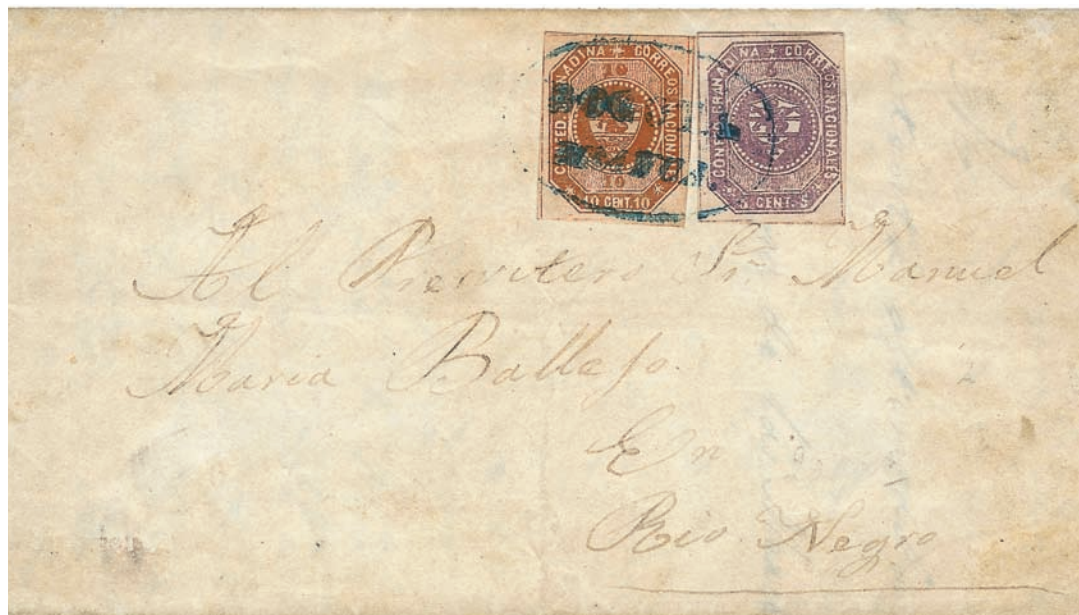 CONFED. GRANADINA * CORREOS NACIONALES
10
10
* 10 CENT. 10 *
CONFED. GRANADINA * CORREOS NACIONALES
5
* 5 CENT. 5 *
BOGOTA
Al Presvitero Sr. Manuel
Maria Ballejo.
En
Rio Negro